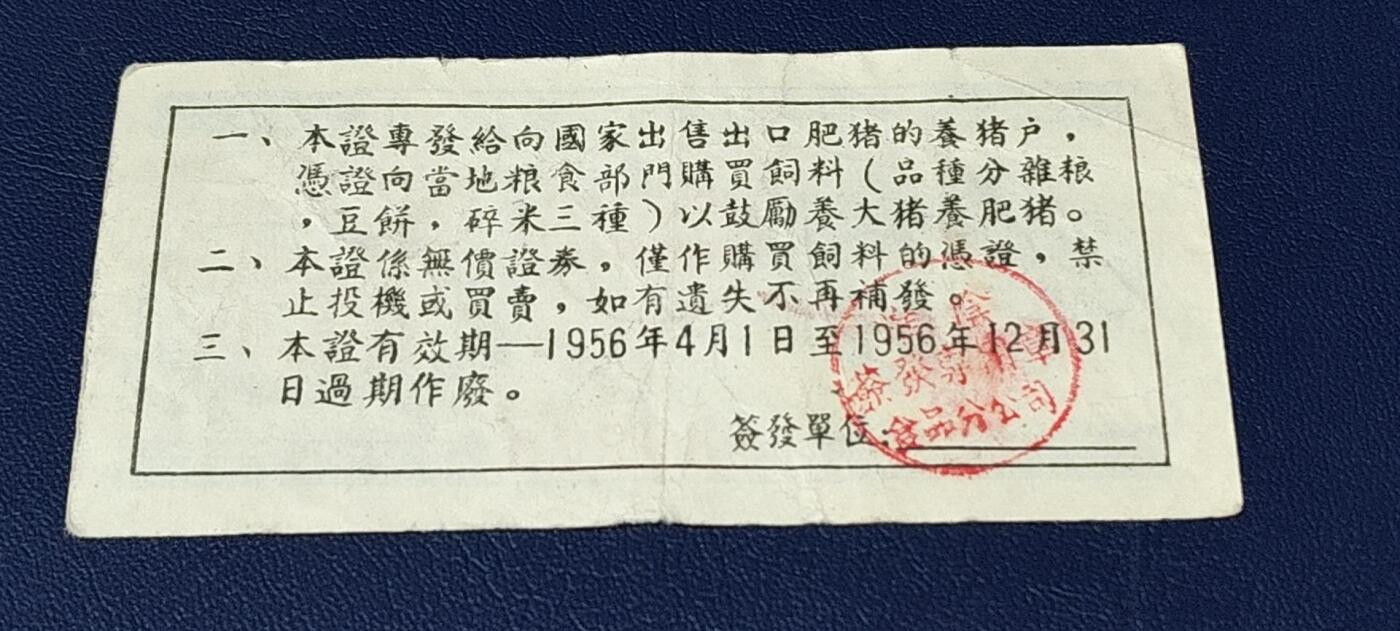 一、本證專發給向國家出售出口肥猪的養猪户，
憑證向當地粮食部門購買飼料（品種分雜粮
，豆餅，碎米三種）以鼓勵養大猪養肥猪。
二、本證係無價證券，僅作購買飼料的憑證，禁
止投機或買賣，如有遺失不再補發。
三、本證有效期—1956年4月1日至1956年12月31
日過期作廢。
簽發單位：
食品分公司